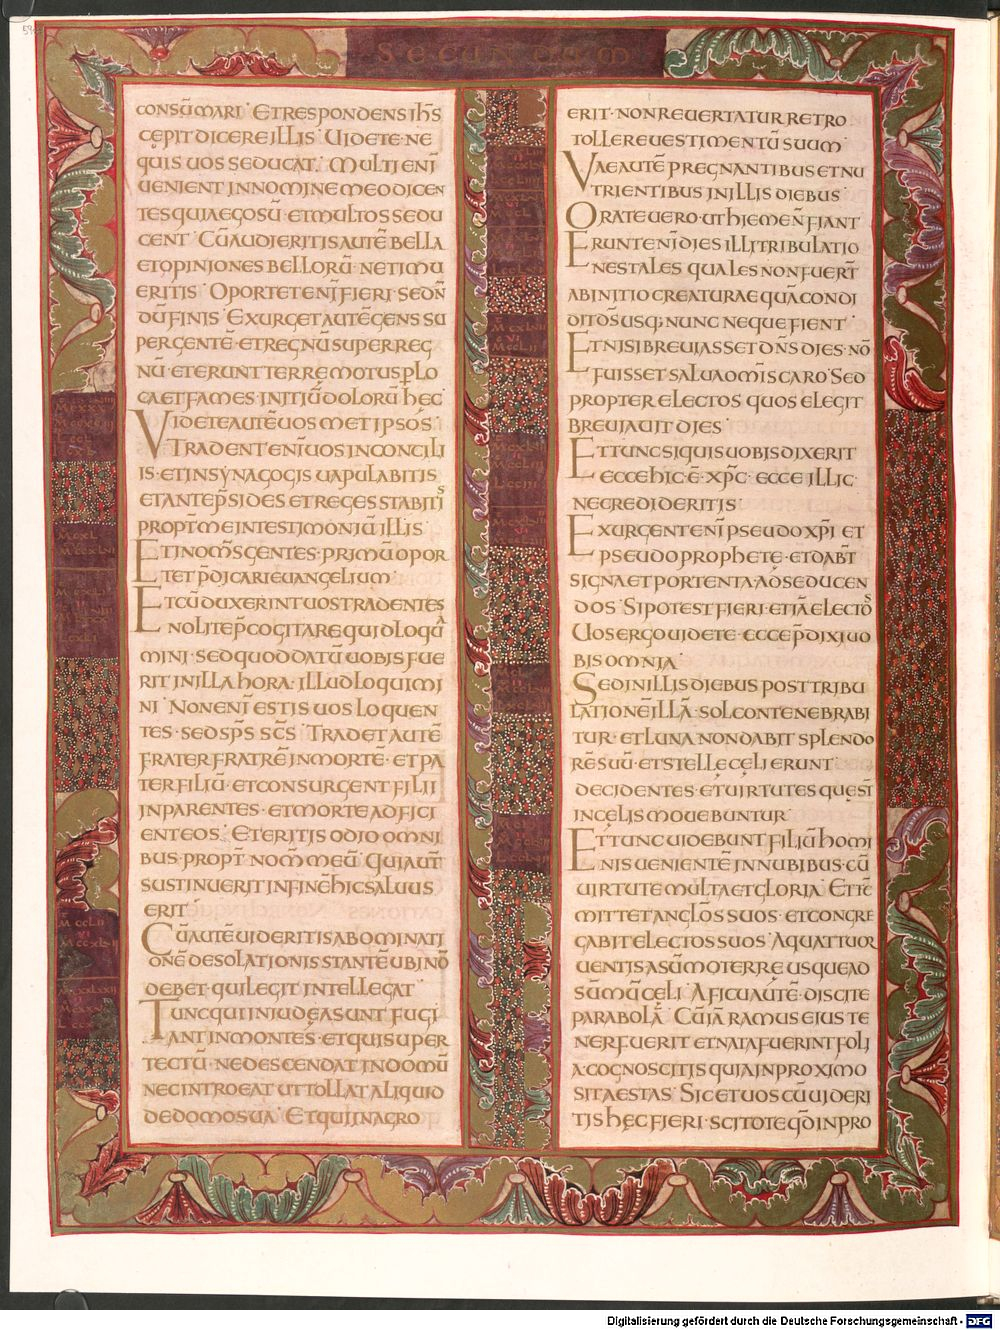 SECUNDUM
CONSŪMARI · ET RESPONDENS IH̄S
CĘPIT DICERE ILLIS · UIDETE · NE
QUIS UOS SEDUCAT · MULTI ENĪ
UENIENT IN NOMINE MEO DICEN
TES QUIA EGO SŪ · ET MULTOS SEDU
CENT · CŪ AUDIERITIS AUTĒ BELLA
ET OPINIONES BELLORŪ · NE TIMU
ERITIS · OPORTET ENĪ FIERI · SED N̄
DŪ FINIS · EXURGET AUTĒ GENS SU
PER GENTĒ · ET REGNŪ SUPER REG
NŪ · ET ERUNT TERRĘ MOTUS P̱ LO
CA ET FAMES · INITIŪ DOLORŪ HĘC ·
UIDETE AUTĒ UOS MET IPSOS ·
TRADENT ENĪ UOS IN CONCILI
IS · ET IN SYNAGOGIS UAPULABITIS
ET ANTE P̄SIDES ET REGES STABITIS
PROPT̄ ME IN TESTIMONIŪ ILLIS ·
ET IN OM̄S GENTES · PRIMŪ OPOR
TET P̄DICARI EUANGELIUM ·
ET CŪ DUXERINT UOS TRADENTES
NOLITE P̄COGITARE QUID LOQUA
MINI · SED QUOD DATŪ UOBIS FUE
RIT IN ILLA HORA · ILLUD LOQUIMI
NI · NON ENĪ ESTIS UOS LOQUEN
TES · SED SP̄S SC̄S · TRADET AUTĒ
FRATER FRATRĒ IN MORTĒ · ET PA
TER FILIŪ · ET CONSURGENT FILII
IN PARENTES · ET MORTE ADFICI
ENT EOS · ET ERITIS ODIO OMNI
BUS · PROPT̄ NOM̄ MEŪ · QUI AUT̄
SUSTINUERIT IN FINĒ HIC SALUUS
ERIT ·
CŪ AUTĒ UIDERITIS ABOMINATI
ONĒ DESOLATIONIS STANTĒ UBI NŌ
DEBET · QUI LEGIT INTELLEGAT ·
TUNC QUI IN IUDĘA SUNT FUGI
ANT IN MONTĒS · ET QUI SUPER
TECTŪ · NE DESCENDAT IN DOMŪ
NEC INTROEAT UT TOLLAT ALIQUID
DE DOMO SUA · ET QUI IN AGRO
ERIT · NON REUERTATUR RETRO
TOLLERE UESTIMENTŪ SUUM ·
UAE AUTĒ PREGNANTIBUS ET NU
TRIENTIBUS IN ILLIS DIEBUS ·
ORATE UERO · UT HIEME N̄ FIANT
ERUNT ENĪ DIES ILLI TRIBULATIO
NES TALES QUALES NON FUERT̄
AB INITIO CREATURAE QUĀ CONDI
DIT DS̄ USQ; NUNC NEQUE FIENT ·
ET NISI BREUIASSET DN̄S DIES · NŌ
FUISSET SALUA OMĪS CARO · SED
PROPTER ELECTOS QUOS ELEGIT
BREUIAUIT DIES ·
ET TUNC SI QUIS UOBIS DIXERIT
ECCE HIC · Ē · XP̄C · ECCE ILLIC ·
NE CREDIDERITIS ·
EXURGENT ENĪ PSEUDO XP̄I ET
PSEUDO PROPHETE · ET DABT̄
SIGNA ET PORTENTA · AD SEDUCEN
DOS · SI POTEST FIERI · ETIĀ ELECTOS
UOS ERGO UIDETE · ECCE P̄DIXI UO
BIS OMNIA ·
SED IN ILLIS DIEBUS POST TRIBU
LATIONĒ ILLĀ · SOL CONTENEBRABI
TUR · ET LUNA NON DABIT SPLENDO
RĒ SUŪ · ET STELLĘ CĘLI ERUNT
DECIDENTES · ET UIRTUTES QUĘ ST̄
IN CĘLIS MOUEBUNTUR ·
ET TUNC UIDEBUNT FILIŪ HOMI
NIS UENIENTĒ IN NUBIBUS · CŪ
UIRTUTE MULTA ET GLORIA · ET TC̄
MITTET ANGLOS SUOS · ET CONGRE
GABIT ELECTOS SUOS · A QUATTUOR
UENTIS A SŪMO TERRĘ USQUE AD
SŪMŪ CĘLI · A FICU AUTĒ · DISCITE
PARABOLĀ · CŪ IĀ RAMUS EIUS TE
NER FUERIT · ET NATA FUERINT FOLI
A · COGNOSCITIS QUIA IN PROXIMO
SIT AESTAS · SIC ET UOS CŪ UIDERI
TIS HĘC FIERI · SCITOTE QD̄ IN PRO
Digitalisierung gefördert durch die Deutsche Forschungsgemeinschaft - DFG